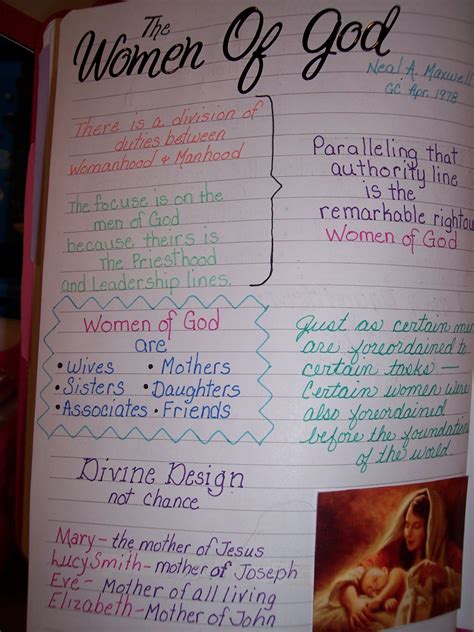 The
Women Of God
Neal A. Maxwell
GC Apr. 1978
There is a division of
duties between
Womanhood & Manhood
The focuse is on the
men of God
because theirs is
The Priesthood
and Leadership lines.
Paralleling that
authority line
is the
remarkable rightou
Women of God
Women of God
are
•Wives •Mothers
•Sisters •Daughters
•Associates •Friends
Just as certain men
are foreordained to
certain tasks —
Certain women were
also foreordained
before the foundation
of the world.
Divine Design
not chance
Mary- the mother of Jesus
Lucy Smith- mother of Joseph
Eve- Mother of all living
Elizabeth- Mother of John